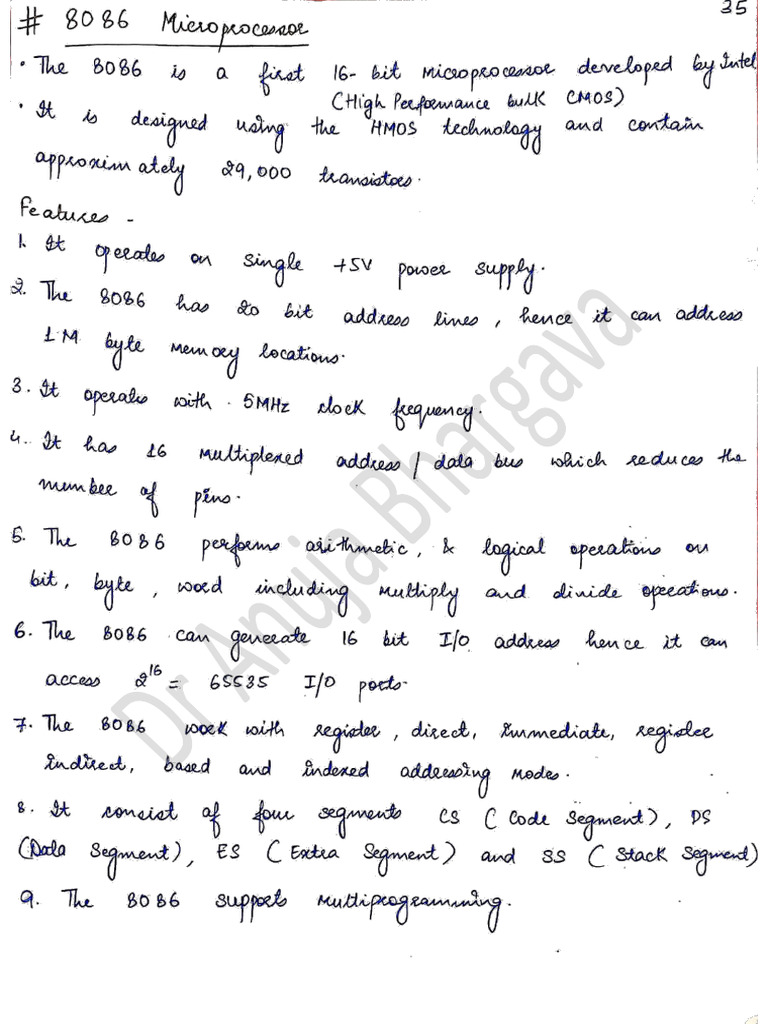 35
# 8086 Microprocessor
• The 8086 is a first 16-bit microprocessor developed by Intel
(High Performance bulk CMOS)
• It is designed using the HMOS technology and contain
approximately 29,000 transistors.
Features -
1. It operates on single +5V power supply.
2. The 8086 has 20 bit address lines, hence it can address
1M byte memory locations.
3. It operates with 5MHz clock frequency.
4. It has 16 multiplexed address / data bus which reduces the
number of pins.
5. The 8086 performs arithmetic, & logical operations on
bit, byte, word including multiply and divide operations.
6. The 8086 can generate 16 bit I/O address hence it can
access 2^16 = 65535 I/O ports.
7. The 8086 work with register, direct, immediate, register
indirect, based and indexed addressing modes.
8. It consist of four segments CS (Code Segment), DS
(Data Segment), ES (Extra Segment) and SS (Stack Segment)
9. The 8086 supports multiprogramming.
Dr Anuja Bhargava